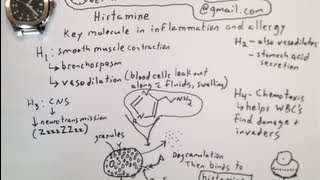 @gmail.com
Histamine
Key molecule in inflammation and allergy
H₁: smooth muscle contraction
↳ bronchospasm
↳ vasodilation (blood cells leak out
along c̄ fluids, swelling)
H₂ - also vasodilates
- stomach acid
secretion
H₃: CNS
↳ neurotransmission
(ZzzzZZzz)
NH₂
H₄ - Chemotaxis
↳ helps WBC's
find damage +
invaders
granules
Degranulation
Then binds to
histamine